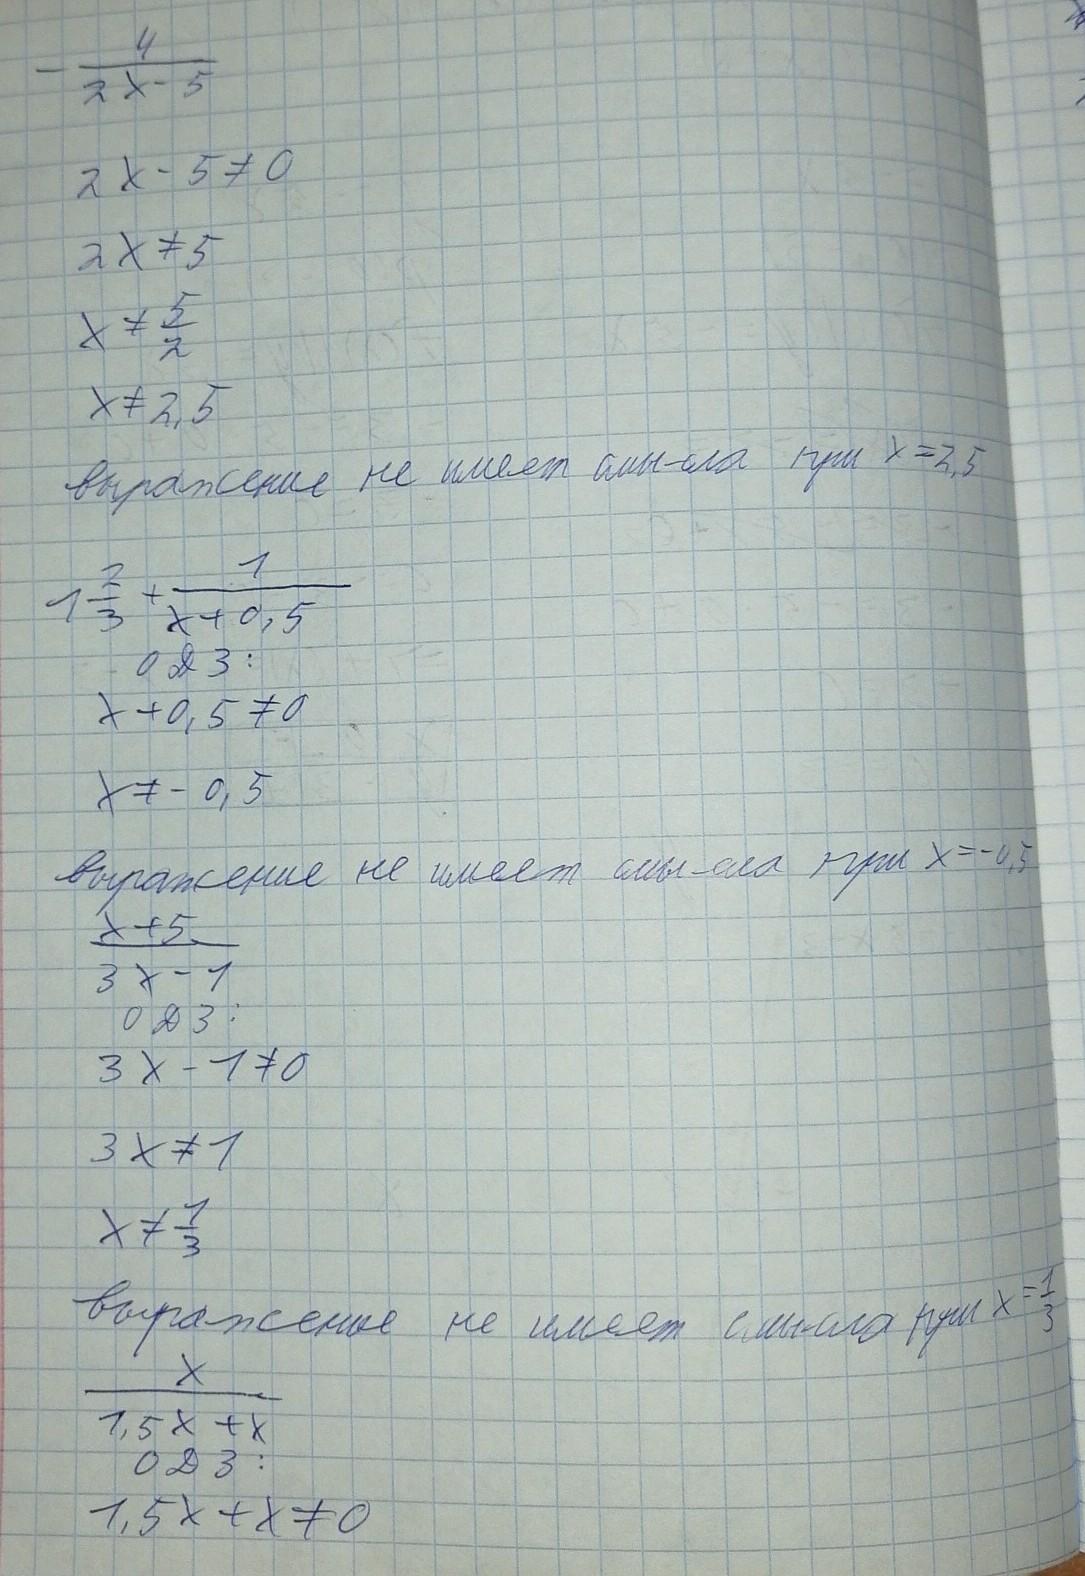 - 4/(2x-5)
2x-5≠0
2x≠5
x≠5/2
x≠2,5
выражение не имеет смы-сла при x=2,5
1 2/3 + 1/(x+0,5)
ОДЗ:
x+0,5≠0
x≠-0,5
выражение не имеет смы-сла при x=-0,5
(x+5)/(3x-1)
ОДЗ:
3x-1≠0
3x≠1
x≠1/3
выражение не имеет смысла при x=1/3
x/(1,5x+x)
ОДЗ:
1,5x+x≠0